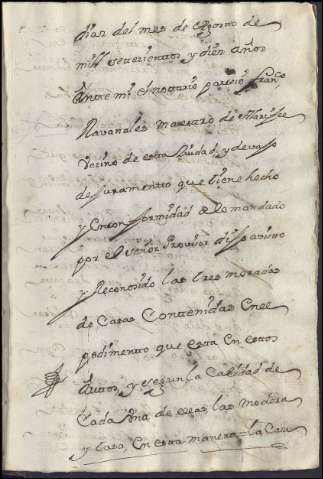 dias del mes de Agosto de
mill setecientos y diez años
Ante mi el notario parecio Franco
Ravanales maestro de Alarife
vecino de esta Ciudad y devajo
de Juramento que tiene hecho
y En conformidad de lo mandado
por el señor Provisor dijo avia visto
y Reconosido las tres moradas
de Casas Contenidas En el
pedimento que esta En estos
Autos, y segun la Calidad de
Cada Una de ellas las medira
y tasa En esta manera = la Casa